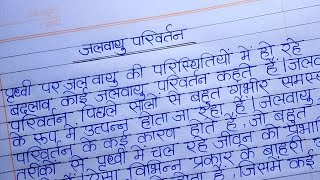 जलवायु परिवर्तन
पृथ्वी पर जलवायु की परिस्थितियों में हो रहे
बदलाव कोई जलवायु परिवर्तन कहते हैं। जलवायु
परिवर्तन पिछले सालों से बहुत गंभीर समस्या
के रूप में उत्पन्न होता जा रहा है। जलवायु
परिवर्तन के कई कारण होते हैं, जो बहुत
तरीकों से पृथ्वी में चल रहे जीवन को
विभिन्न प्रकार के बाहरी
होता है, जिसमें कई